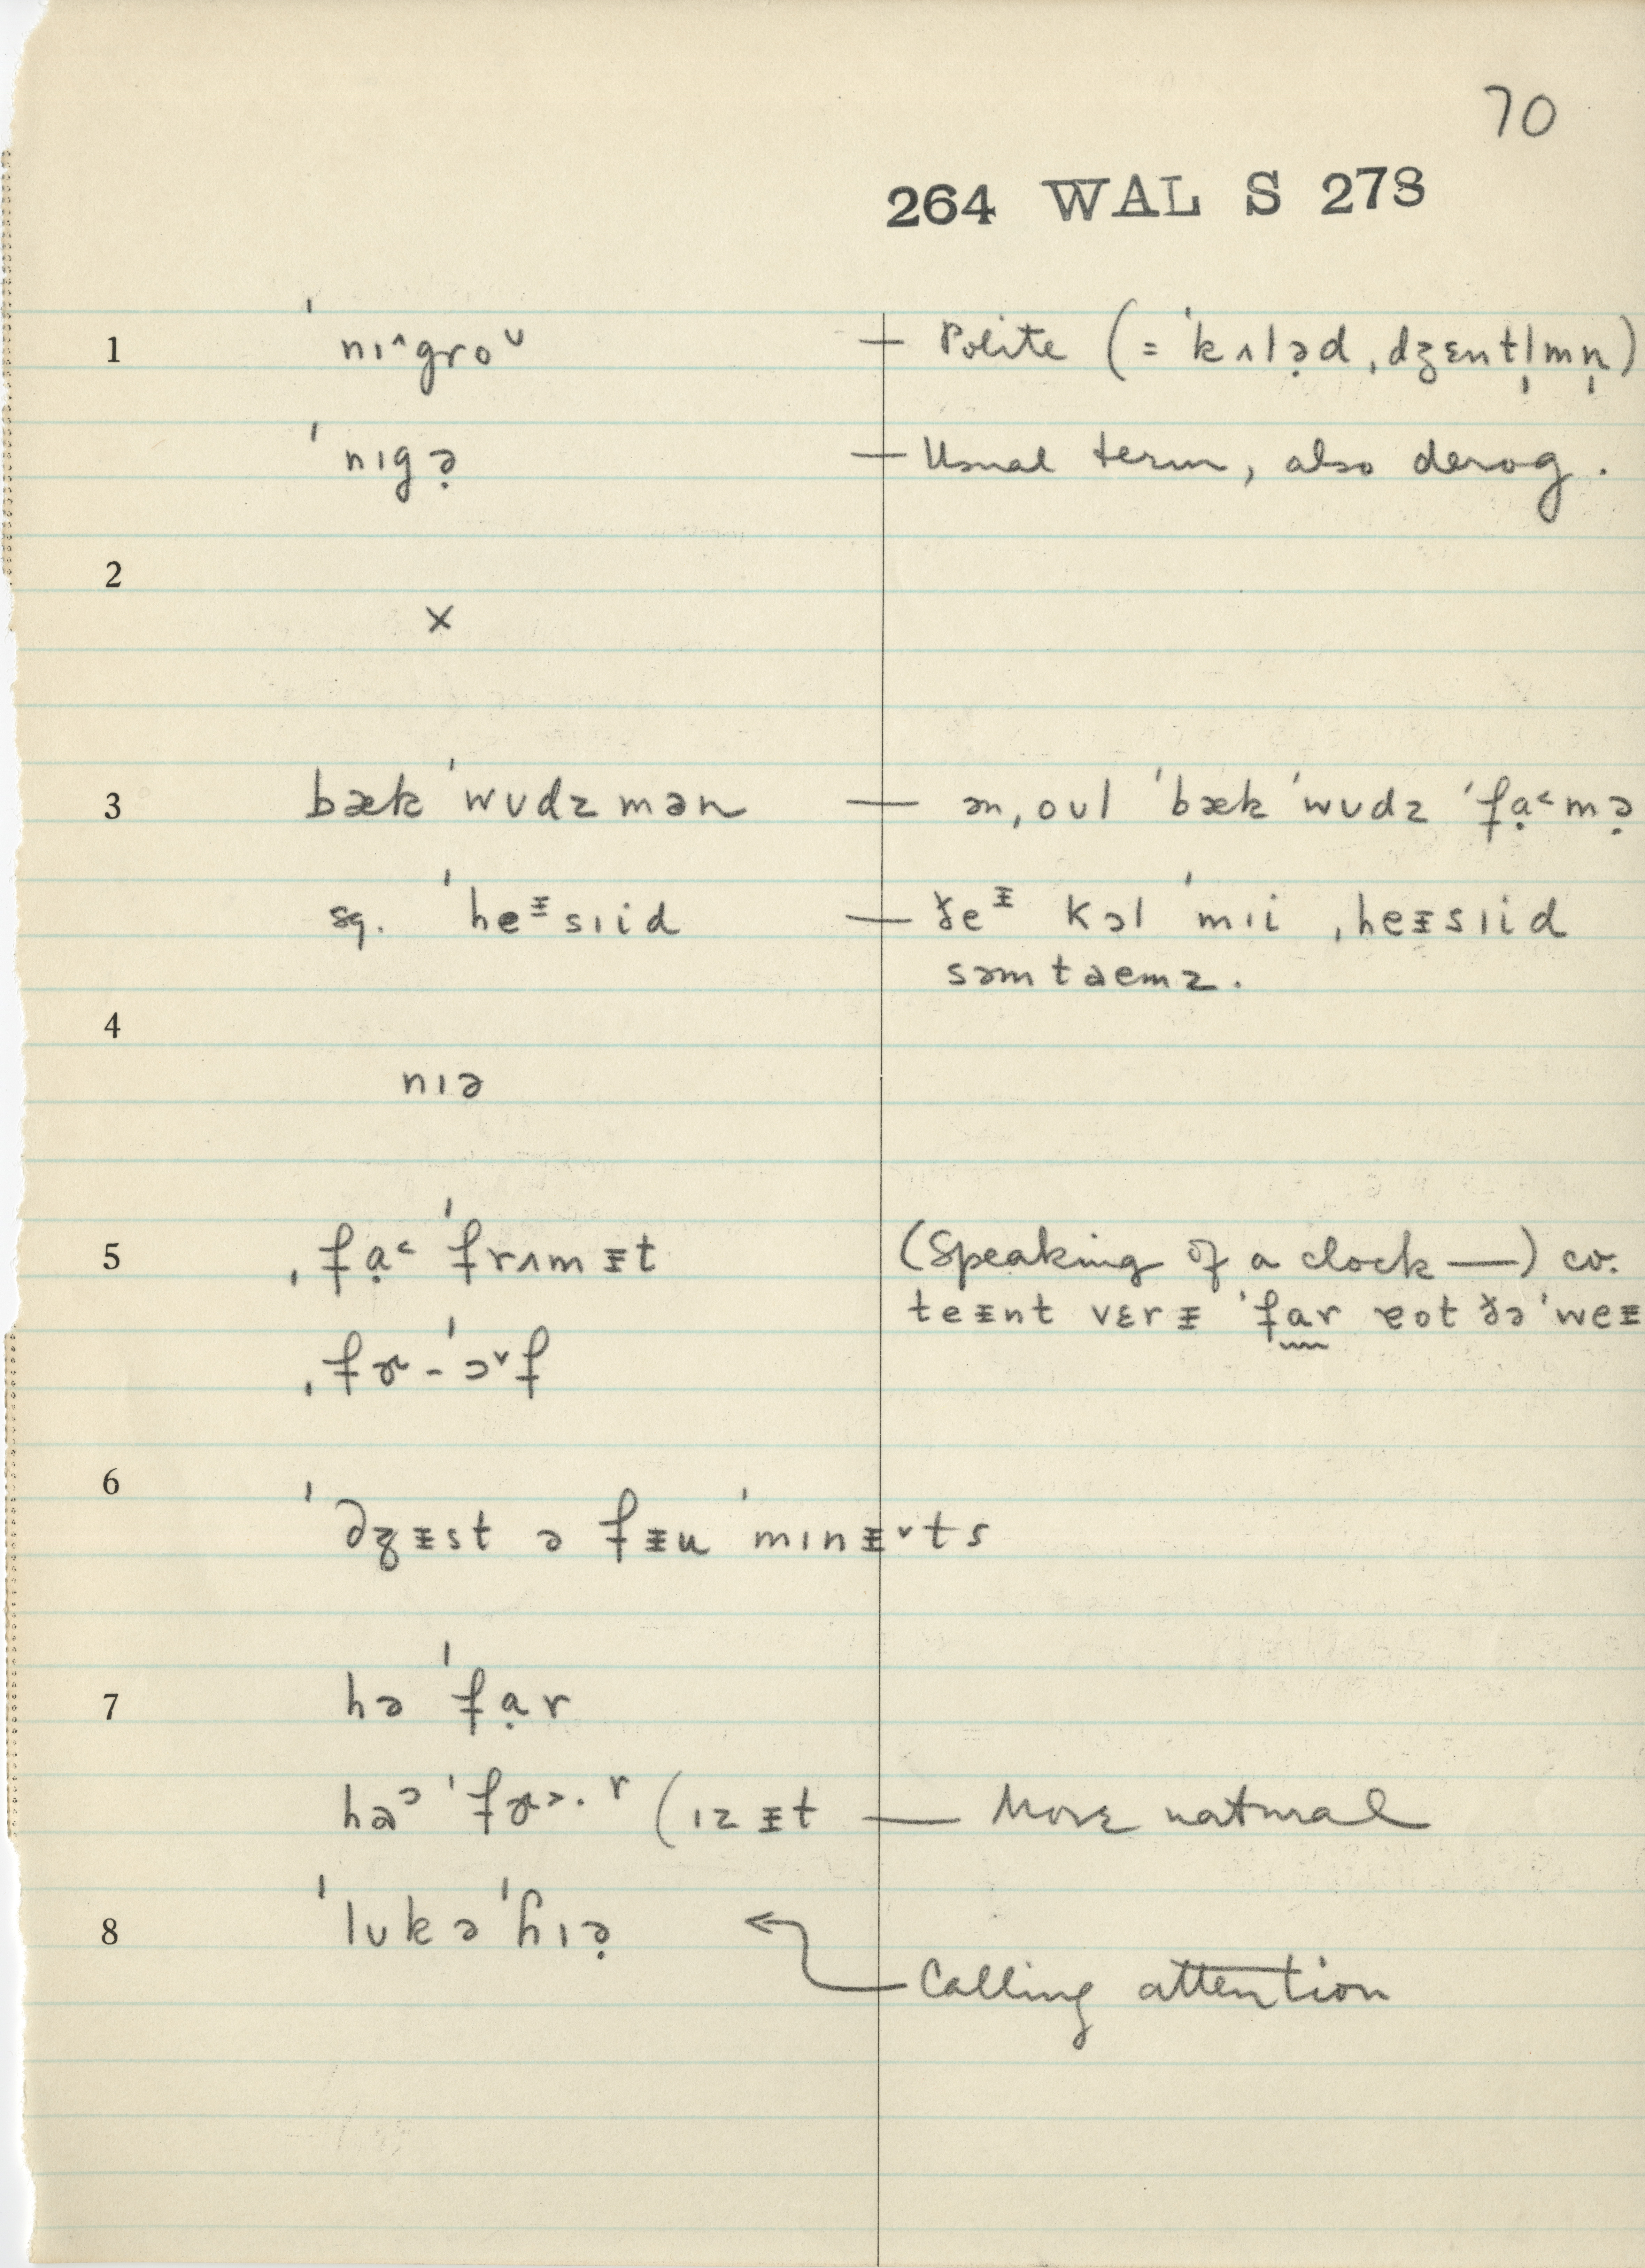 70
264 WAL S 273
1 ˈnɪ˄groᶷ — Polite (= ˈkʌlə̣d ˌdʒɛntl̩mn̩)
ˈnɪgə̣ — Usual term, also derog.
2
×
3 bækˈwʊdzmən — ənˌoʊl ˈbækˈwʊdz ˈfạ˂mə̣
sq. ˈheᵻsɪid — ðeᵻ kɔl ˈmɪi ˌheᵻsɪid
səmtaemz.
4
nɪə
5 ˌfạ˂ ˈfrʌmᵻt (Speaking of a clock —) cv.
teᵻnt vɛrᵻ ˈfar ɐot ðə ˈweᵻ
ˌfɚ-ˈɔ˅f
6 ˈdʒᵻst ə fᵻu ˈmɪnᵻ˅ts
7 hə ˈfạr
həᵓ ˈfɚ˃·ʳ (ɪz ᵻt — More natural
8 ˈlʊkə ˈɦɪə̣
Calling attention